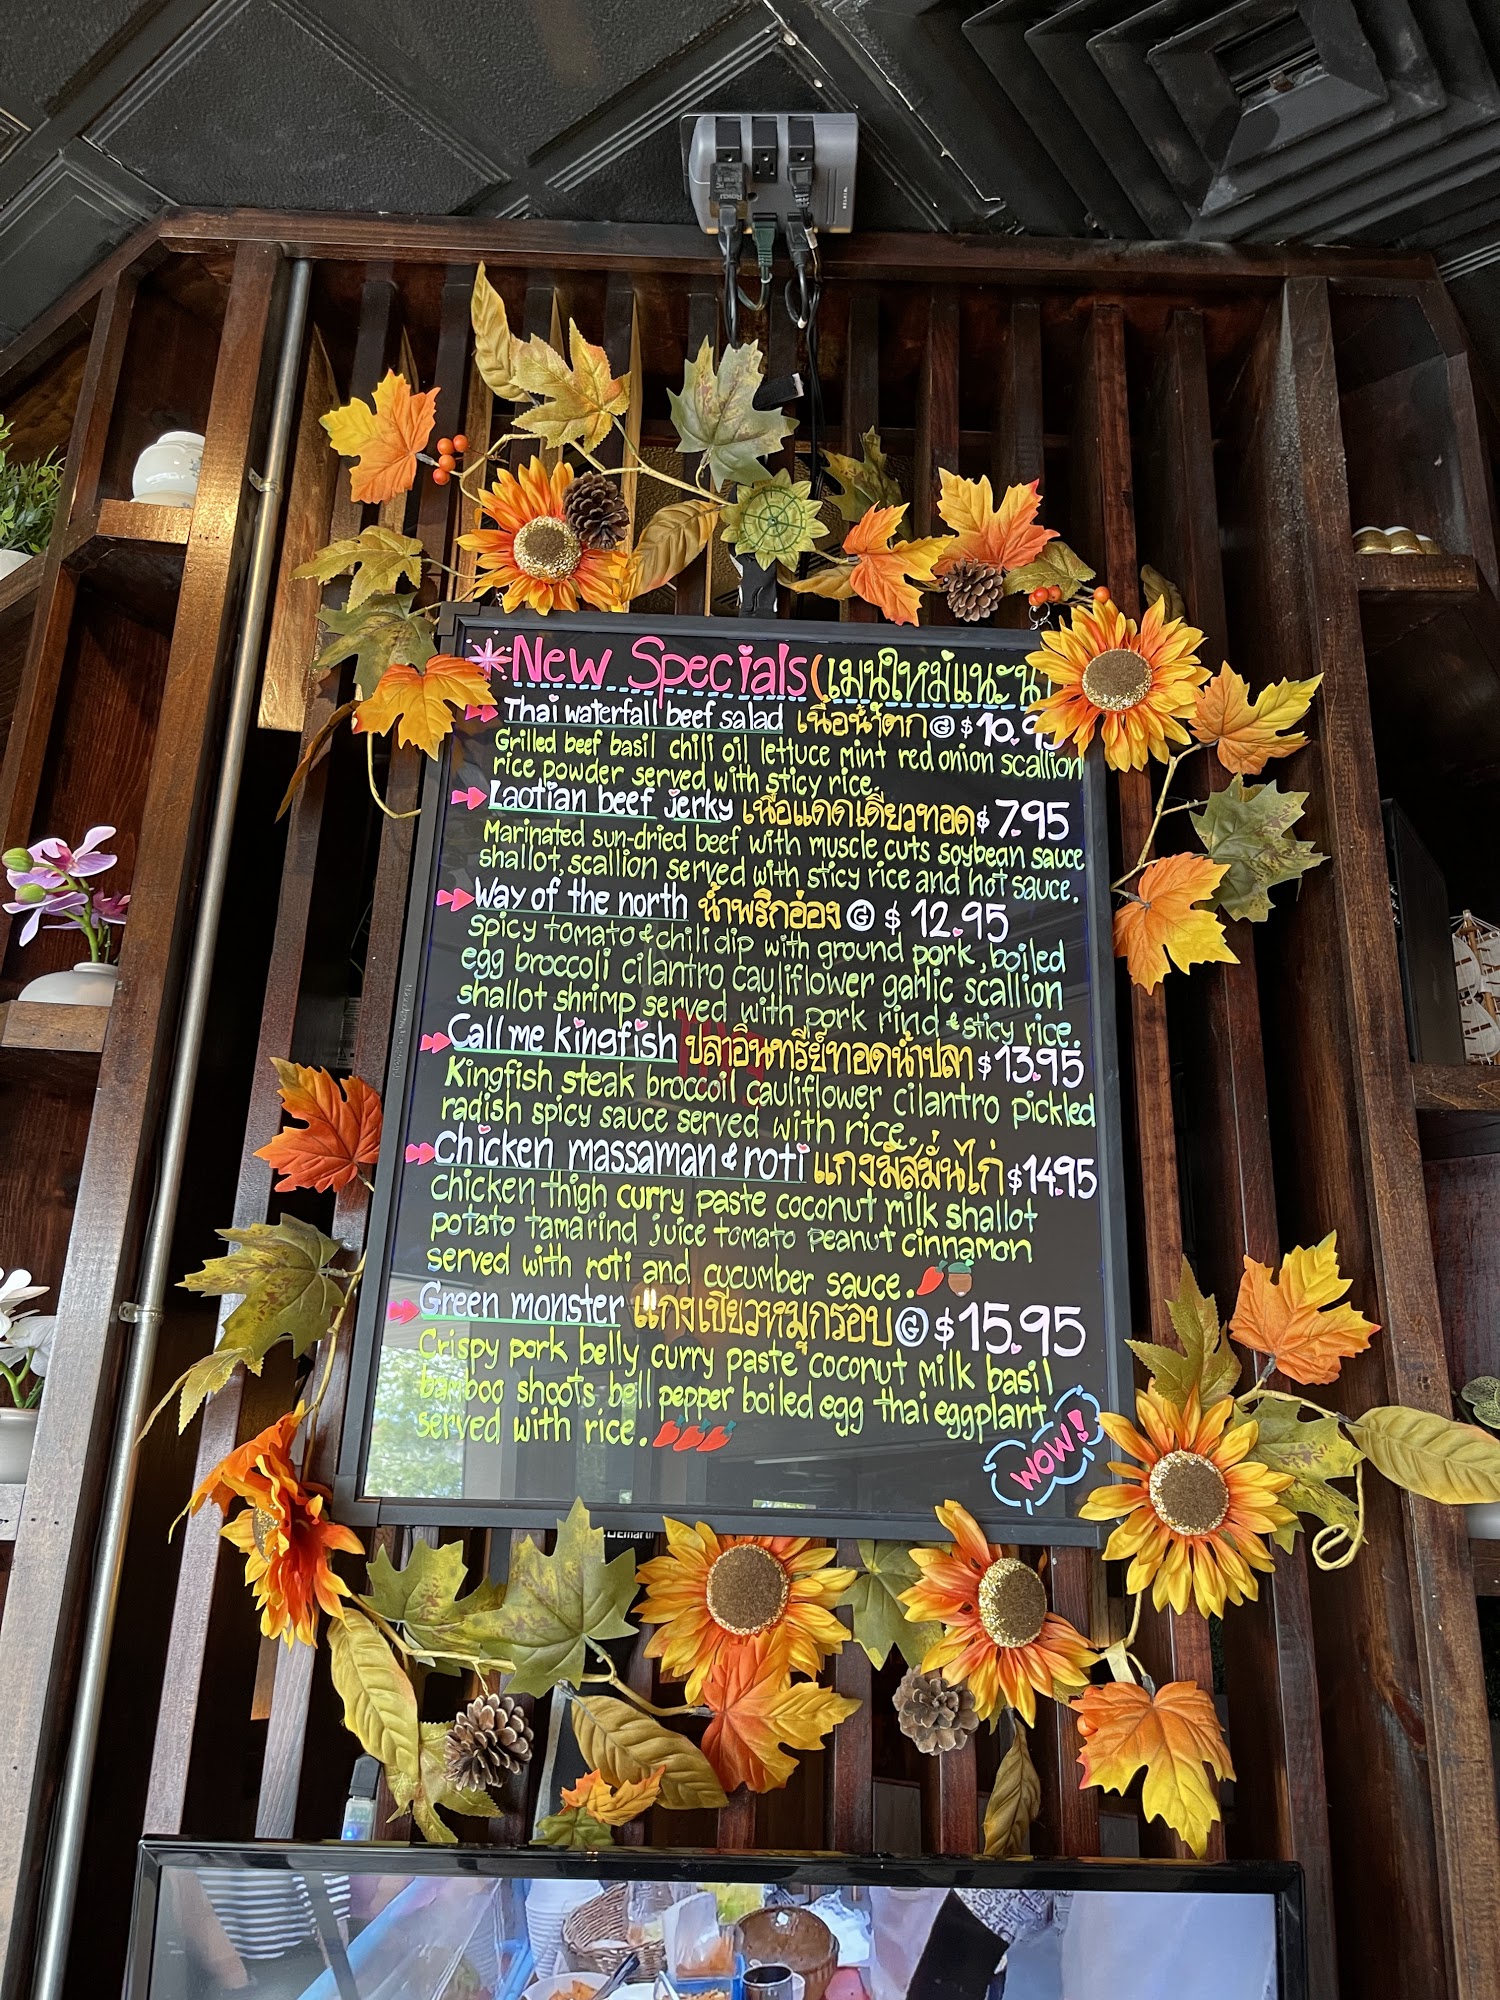 New Specials (เมนูใหม่แนะนำ
Thai waterfall beef salad เนื้อน้ำตก G $10.95
Grilled beef basil chili oil lettuce mint red onion scallion
rice powder served with sticy rice.
Laotian beef jerky เนื้อแดดเดียวทอด $7.95
Marinated sun-dried beef with muscle cuts soybean sauce
shallot, scallion served with sticy rice and hot sauce.
Way of the north น้ำพริกอ่อง G $12.95
Spicy tomato & chili dip with ground pork, boiled
egg broccoli cilantro cauliflower garlic scallion
shallot shrimp served with pork rind & sticy rice.
Call me kingfish ปลาอินทรีย์ทอดน้ำปลา $13.95
Kingfish steak broccoil cauliflower cilantro pickled
radish spicy sauce served with rice.
Chicken massaman & roti แกงมัสมั่นไก่ $14.95
chicken thigh curry paste coconut milk shallot
potato tamarind juice tomato peanut cinnamon
served with roti and cucumber sauce.
Green monster แกงเขียวหมูกรอบ G $15.95
Crispy pork belly curry paste coconut milk basil
bamboo shoots, bell pepper boiled egg thai eggplant
served with rice.
WOW!